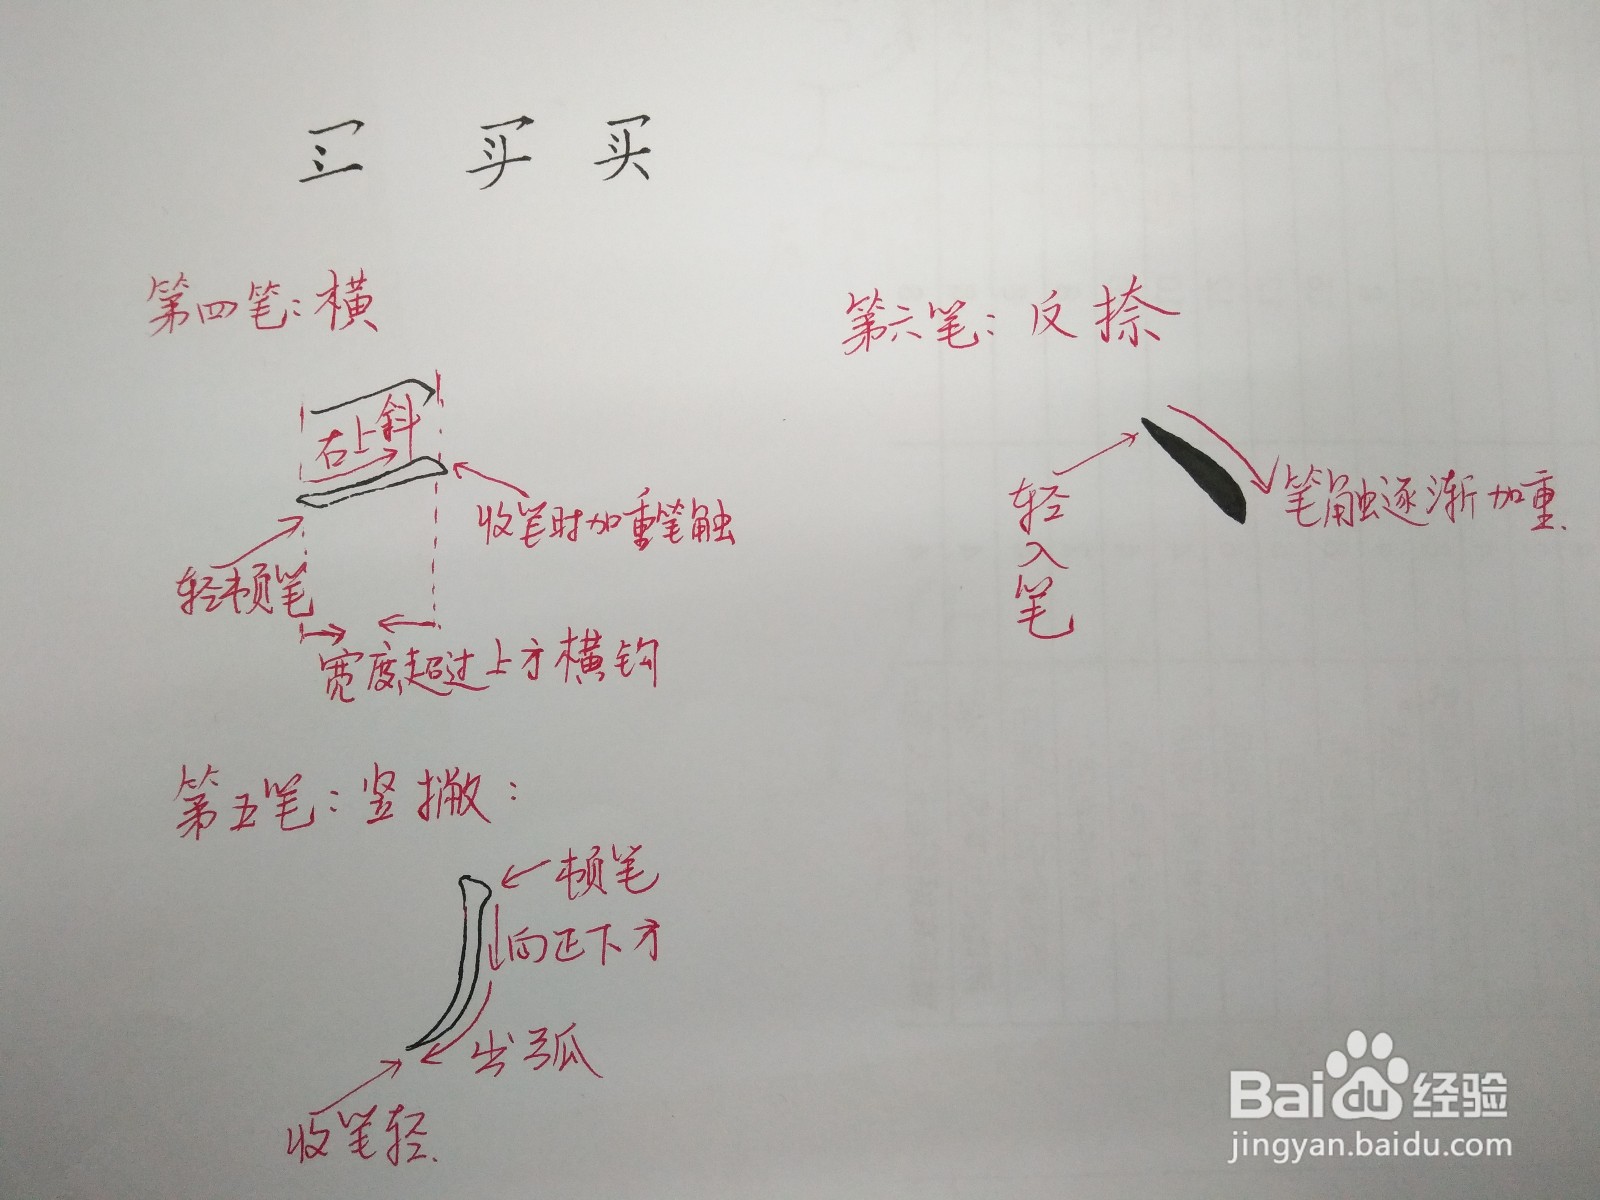 买 买
第四笔:横
右上斜
收笔时加重笔触
轻顿笔
宽度超过上方横钩
第五笔:竖撇:
顿笔
向正下方
出弧
收笔轻.
第六笔:反捺
轻入笔
笔触逐渐加重.
Baidu经验
jingyan.baidu.com